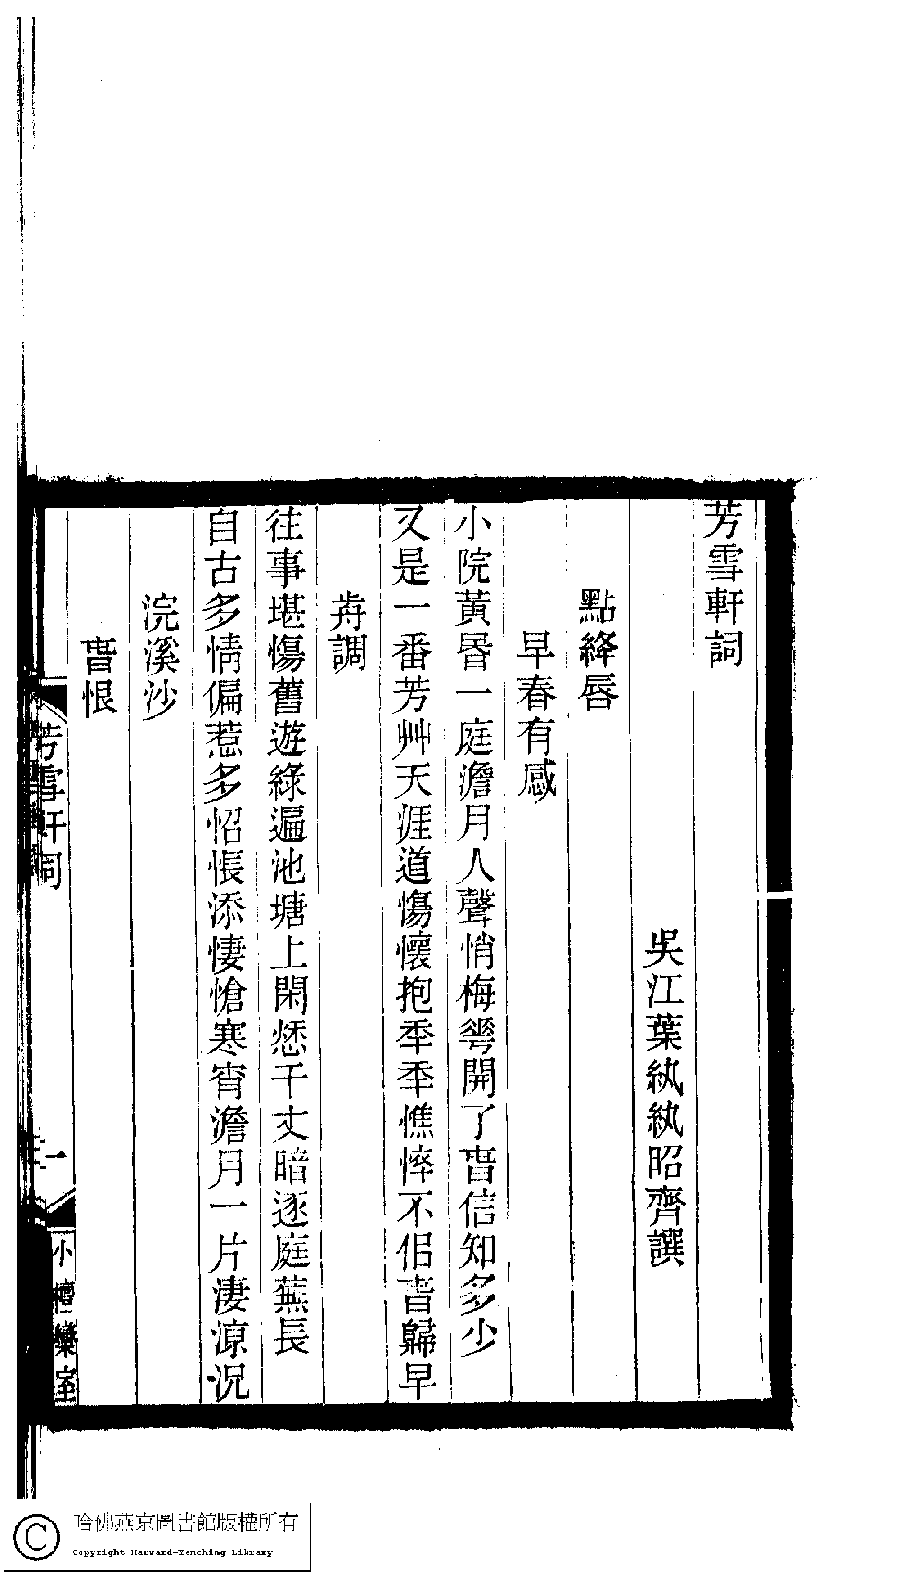 芳雪軒詞
吳江葉紈紈昭齊譔
點絳唇
早春有感
小院黃昬一庭澹月人聲悄梅蕚開了旾信知多少
又是一番芳艸天涯道傷懷抱秊秊憔悴不侶旾歸早
歬調
往事堪傷舊遊綠遍池塘上閑愁千丈暗逐庭蕪長
自古多情偏惹多怊悵添悽愴寒宵澹月一片淒涼況
浣溪沙
旾恨
芳雪軒詞
一
小檀欒室
哈佛燕京圖書館版權所有
Copyright Harvard-Yenching Library